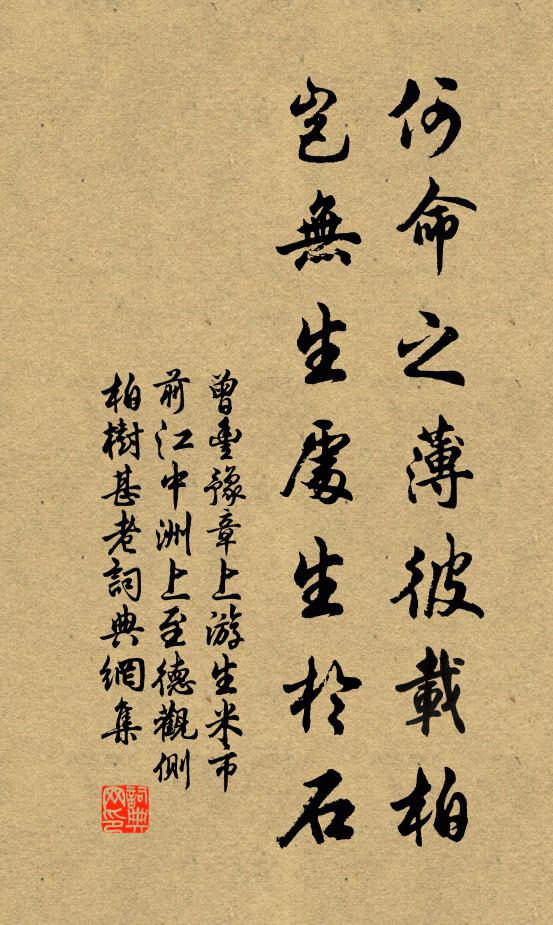 何命之薄彼載柏
豈無生處生於石
曾豊豫章上游生米市
前江中洲上至德觀側
柏樹甚老詞典網集
詞典网印